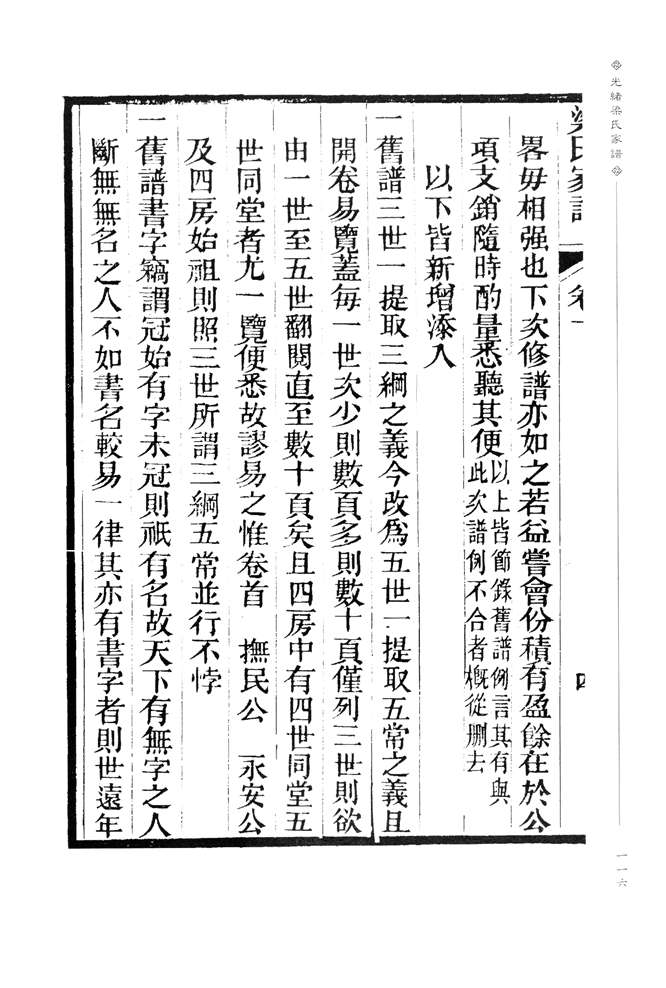 光緒梁氏家譜
一一六
梁氏家譜 卷一 四
畧毋相强也下次修譜亦如之若益嘗會份積有盈餘在於公
項支銷隨時酌量悉聽其便以上皆節錄舊譜例言其有與
此次譜例不合者概從刪去
以下皆新增添入
一舊譜三世一提取三綱之義今改爲五世一提取五常之義且
開卷易覽蓋每一世次少則數頁多則數十頁僅列三世則欲
由一世至五世翻閱直至數十頁矣且四房中有四世同堂五
世同堂者尤一覽便悉故謬易之惟卷首 撫民公 永安公
及四房始祖則照三世所謂三綱五常並行不悖
一舊譜書字竊謂冠始有字未冠則祇有名故天下有無字之人
斷無無名之人不如書名較易一律其亦有書字者則世遠年